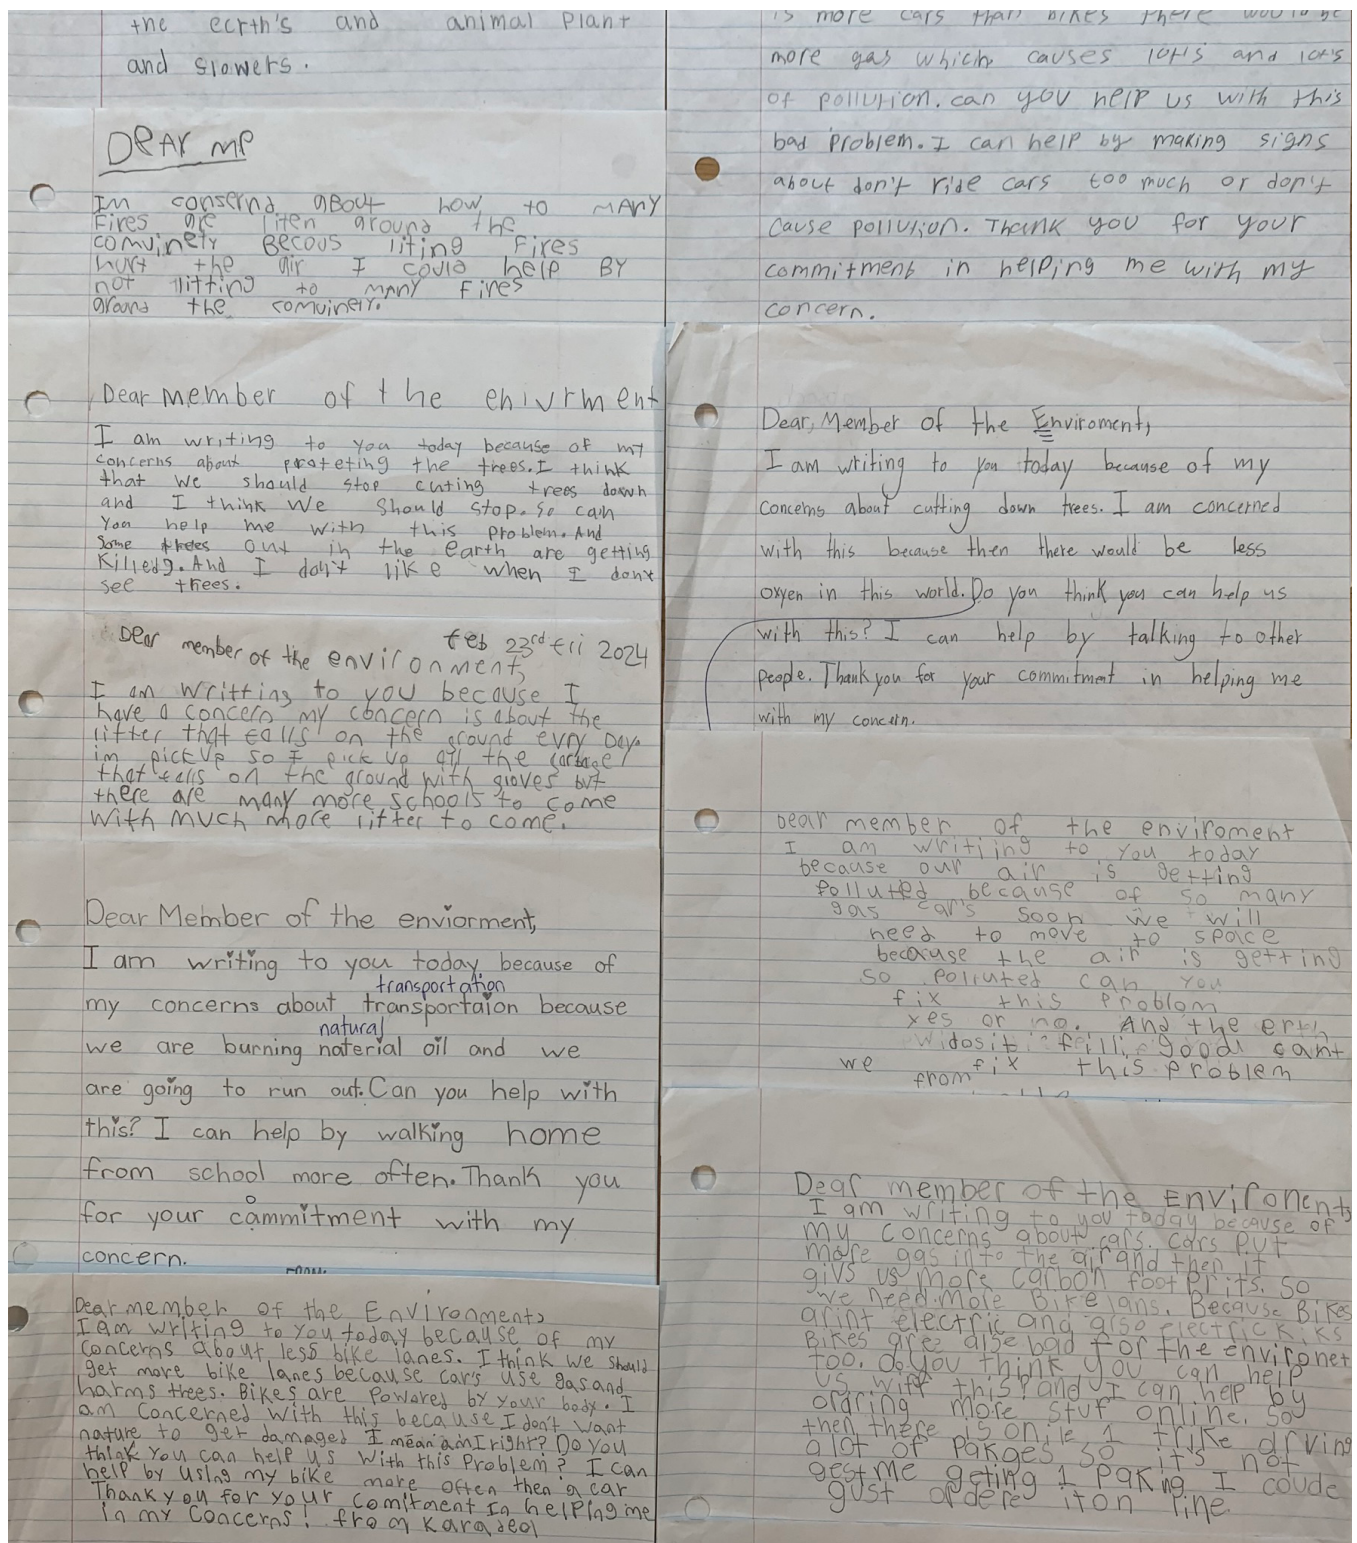 the ecrth's and animal plant
and slowers.
DEAR MP
Im consernd about how to MANY
Fires are liten around the
comuinety Becous liting Fires
hurt the air I could help BY
not litting to MANY Fires
around the comuinety.
Dear member of the enivrment
I am writing to you today because of my
concerns about proteting the trees. I think
that we should stop cuting trees down
and I think We should stop. So can
You help me with this problem. And
Some trees out in the earth are getting
killedg. And I don't like when I dont
see trees.
Dear Feb 23rd Fri 2024
member of the environment,
I am writting to you because I
have a concern my concern is about the
litter that falls on the ground evry Day.
im pickup so I pick up all the garbage
that falls on the ground with gloves but
there are many more schools to come
with much more litter to come.
Dear Member of the enviorment,
I am writing to you today, because of
transportation
my concerns about transportaion because
natural
we are burning naterial oil and we
are going to run out. Can you help with
this? I can help by walking home
from school more often. Thank you
o
for your cammitment with my
concern.
Dear member of the Environment,
I am writing to you today because of my
concerns about less bike lanes. I think we should
get more bike lanes because car's use gas and
harms trees. Bikes are powered by your body. I
am concerned with this because I don't want
nature to get damaged I mean am I right? Do you
think you can help us with this Problem? I can
help by using my bike more often then a car
Thank you for your comitment In helping me
in my concerns! from Karadeol
is more cars than bikes there would be
more gas which causes lot's and lot's
of pollution. can you help us with this
bad problem. I can help by making signs
about don't ride cars too much or don't
cause pollution. Thank you for your
commitment in helping me with my
concern.
Dear, Member of the Enviroment,
I am writing to you today because of my
concerns about cutting down trees. I am concerned
with this because then there would be less
oxyen in this world. Do you think you can help us
with this? I can help by talking to other
people. Thank you for your commitment in helping me
with my concern.
Dear member of the enviroment
I am writiing to you today
because our air is getting
polluted because of so many
gas car's soon we will
need to move to space
because the air is getting
so polluted can you
fix this problom
yes or no. And the erth
good cant
we fix this problem
from
Dear member of the Environent,
I am writing to you today because of
my concerns about cars. Cars put
more gas into the air and then it
givs us more carbon foot prits. So
we need more Bike lans. Because Bikes
arint electric and also electric kiks
Bikes are alse bad for the environet
too. do you think you can help
us witf this? and I can help by
ordring more stuf online. so
then there is onile 1 trike drving
a lot of pakges so it's not
gest me geting 1 paking I coude
gust ordere it on line.